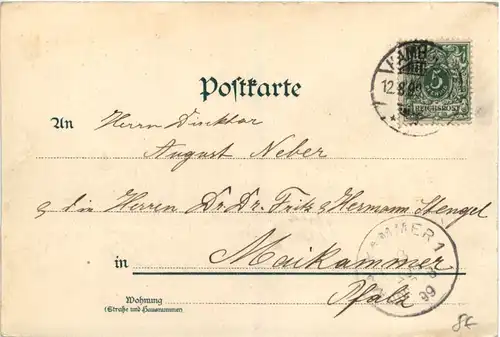 HAMB
12.8.99
5
REICHSPOST
Postkarte
An Herrn Direktor
August Neber
p. die Herren Dr. Dr. Fritz & Hermann Stengel
in Maikammer
Pfalz
AMMER 1
99
Wohnung
(Straße und Hausnummer)
8€